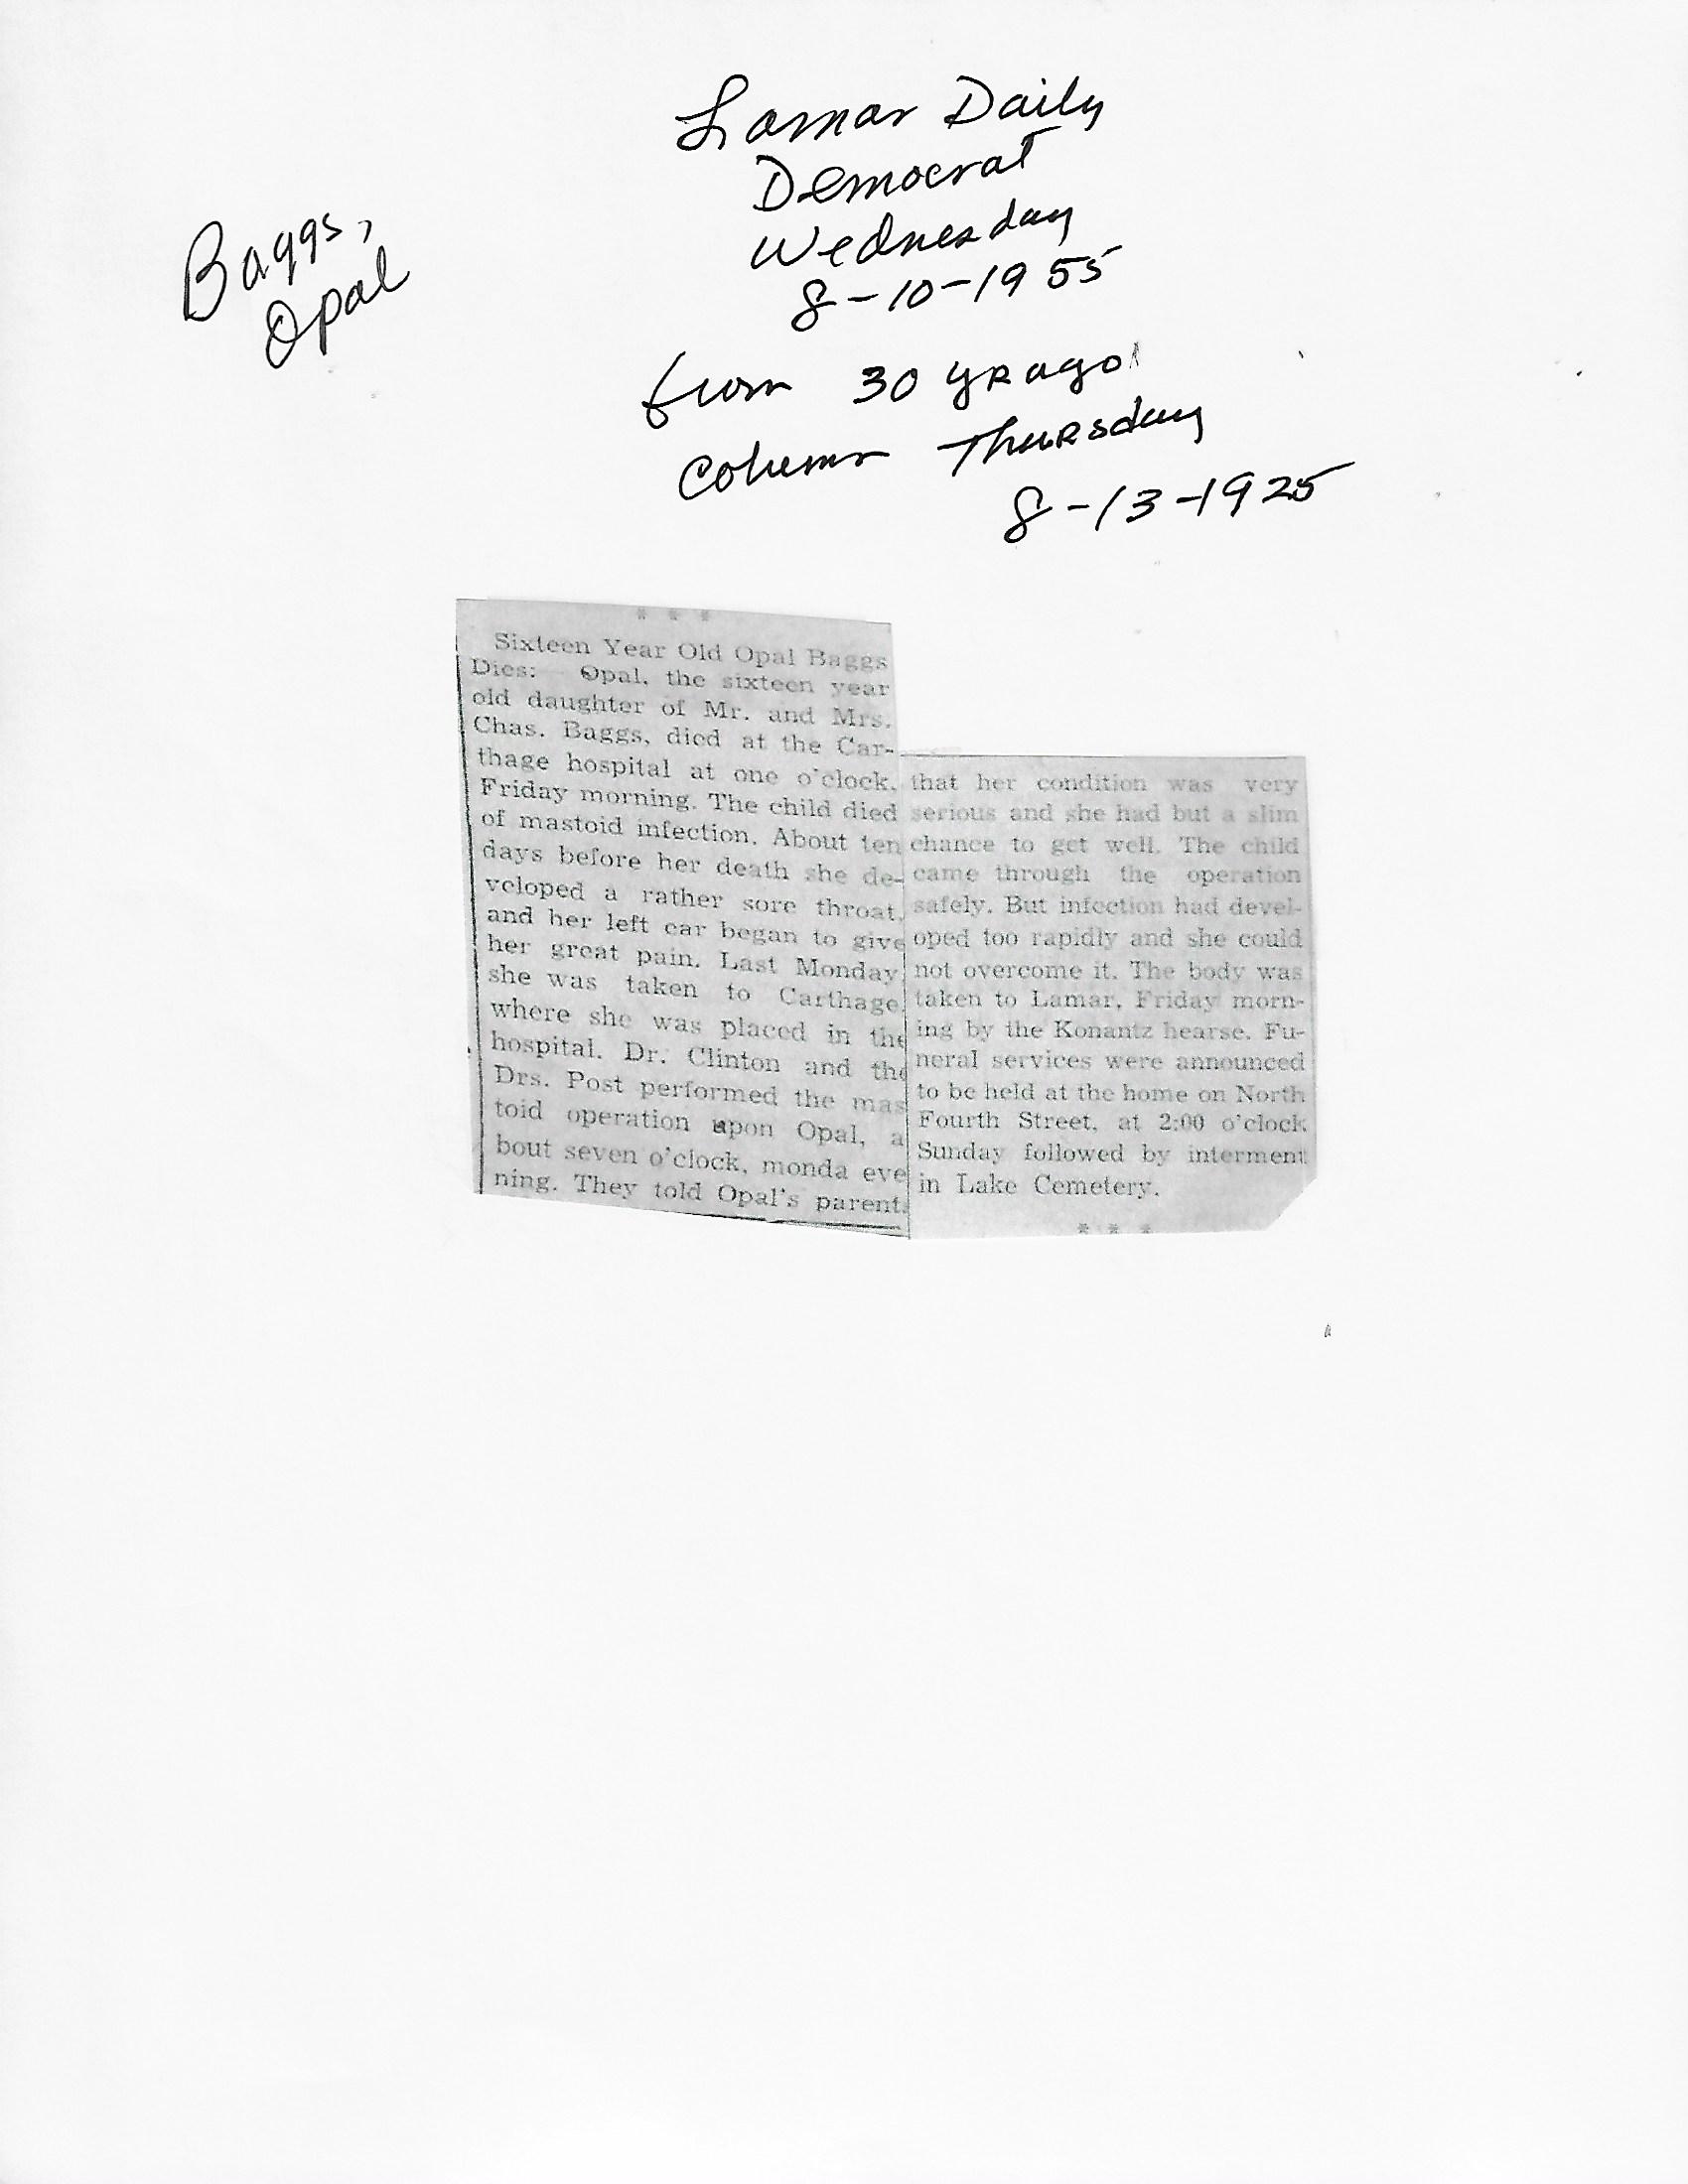 Lamar Daily
Democrat
Wednesday
8-10-1955
from 30 yr ago
Column Thursday
8-13-1925
Baggs,
Opal
* * *
Sixteen Year Old Opal Baggs
Dies: Opal, the sixteen year
old daughter of Mr. and Mrs.
Chas. Baggs, died at the Car-
thage hospital at one o'clock,
Friday morning. The child died
of mastoid infection. About ten
days before her death she de-
veloped a rather sore throat,
and her left ear began to give
her great pain. Last Monday
she was taken to Carthage,
where she was placed in the
hospital. Dr. Clinton and the
Drs. Post performed the mas
toid operation upon Opal, a
bout seven o'clock, monda eve
ning. They told Opal's parents
that her condition was very
serious and she had but a slim
chance to get well. The child
came through the operation
safely. But infection had devel-
oped too rapidly and she could
not overcome it. The body was
taken to Lamar, Friday morn-
ing by the Konantz hearse. Fu-
neral services were announced
to be held at the home on North
Fourth Street, at 2:00 o'clock
Sunday followed by interment
in Lake Cemetery.
* * *